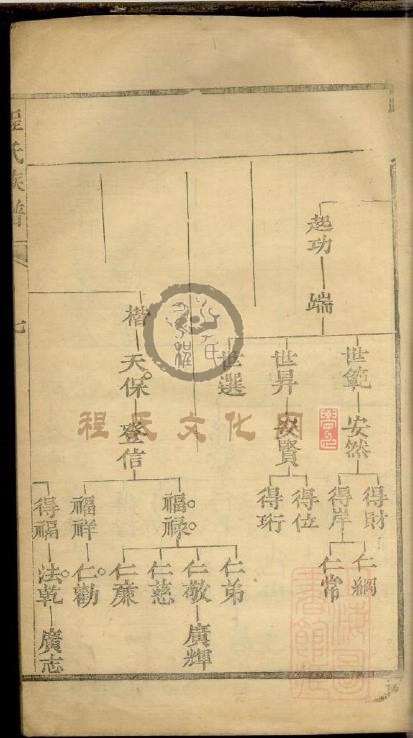 起功
端
世範
安然
得財
得岸
仁綱
仁常
世昇
安賢
得位
得珩
世選
楷
天保
登信
福祿
仁弟
仁敬
廣輝
仁慈
仁廉
福祥
仁勸
得福
法乾
廣志
程氏族譜
七
程氏文化网